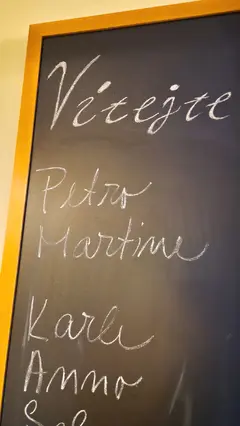 Vítejte
Petro
Martine
Karle
Anno